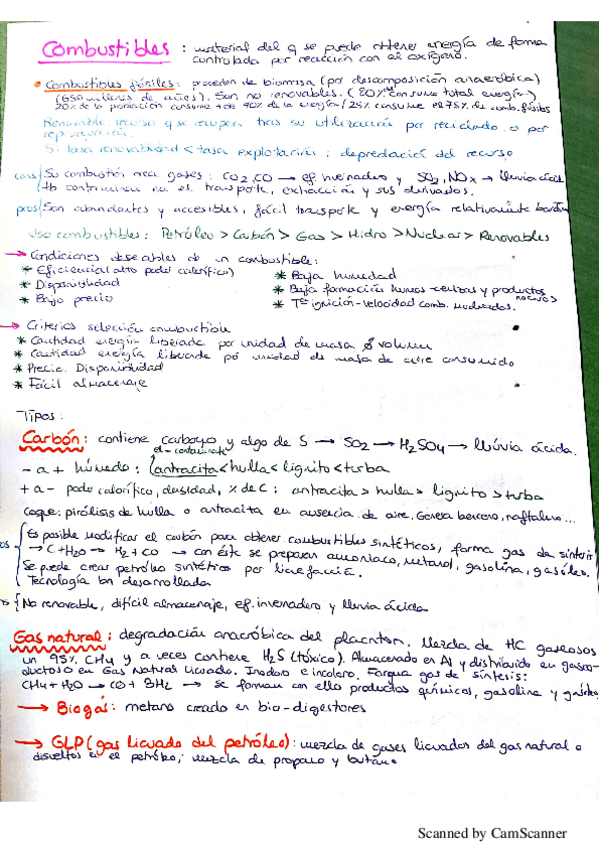 Combustibles : material del q se puede obtener energía de forma
controlada por reacción con el oxígeno.
• Combustibles fósiles: proceden de biomasa (por descomposición anaeróbica)
(650 millones de años). Son no renovables. (80% consumo total energía)
20% de la población consume + de 90% de la energía / 25% consume el 75% de comb. fósiles
Renovable: recurso q se recupera tras su utilización por reciclado o por
Si tasa renovabilidad < tasa explotación : depredación del recurso
cons Su combustión crea gases : CO2, CO → ef. invernadero y SO2, NOx → lluvia ácida
tb contaminan en el transporte, extracción y sus derivados.
pros Son abundantes y accesibles, fácil transporte y energía relativamente barata
Uso combustibles: Petróleo > Carbón > Gas > Hidro > Nuclear > Renovables
→ Condiciones deseables de un combustible:
* Eficiencia (alto poder calorífico)
* Disponibilidad
* Bajo precio
* Baja humedad
* Baja formación humos-cenizas y productos nocivos
* Tª ignición-velocidad comb. moderadas.
→ Criterios selección combustible
* Cantidad energía liberada por unidad de masa o volumen
* Cantidad energía liberada por unidad de masa de aire consumido
* Precio. Disponibilidad
* Fácil almacenaje
Tipos:
Carbón: contiene carbono y algo de S → SO2 → H2SO4 → lluvia ácida.
el + contaminante
- a + húmedo : antracita < hulla < lignito < turba
+ a - poder calorífico, densidad, % de C : antracita > hulla > lignito > turba
Coque: pirólisis de hulla o antracita en ausencia de aire. Genera benceno, naftaleno...
Es posible modificar el carbón para obtener combustibles sintéticos, forma gas de síntesis
→ C + H2O → H2 + CO → con éste se preparan amoniaco, metanol, gasolina, gasóleo.
Se puede crear petróleo sintético por licuefacción.
Tecnología bn desarrollada
No renovable, difícil almacenaje, ef. invernadero y lluvia ácida
Gas natural : degradación anaeróbica del plancton. Mezcla de HC gaseosos
un 95% CH4 y a veces contiene H2S (tóxico). Almacenado en Al y distribuido en gaseo-
ductos o en Gas Natural Licuado. Inodoro e incoloro. Forma gas de síntesis:
CH4 + H2O → CO + 3H2 → se forman con ello productos químicos, gasolina y gasóleo
→ Biogás: metano creado en bio-digestores
→ GLP (gas licuado del petróleo): mezcla de gases licuados del gas natural o
disueltos en el petróleo; mezcla de propano y butano
Scanned by CamScanner